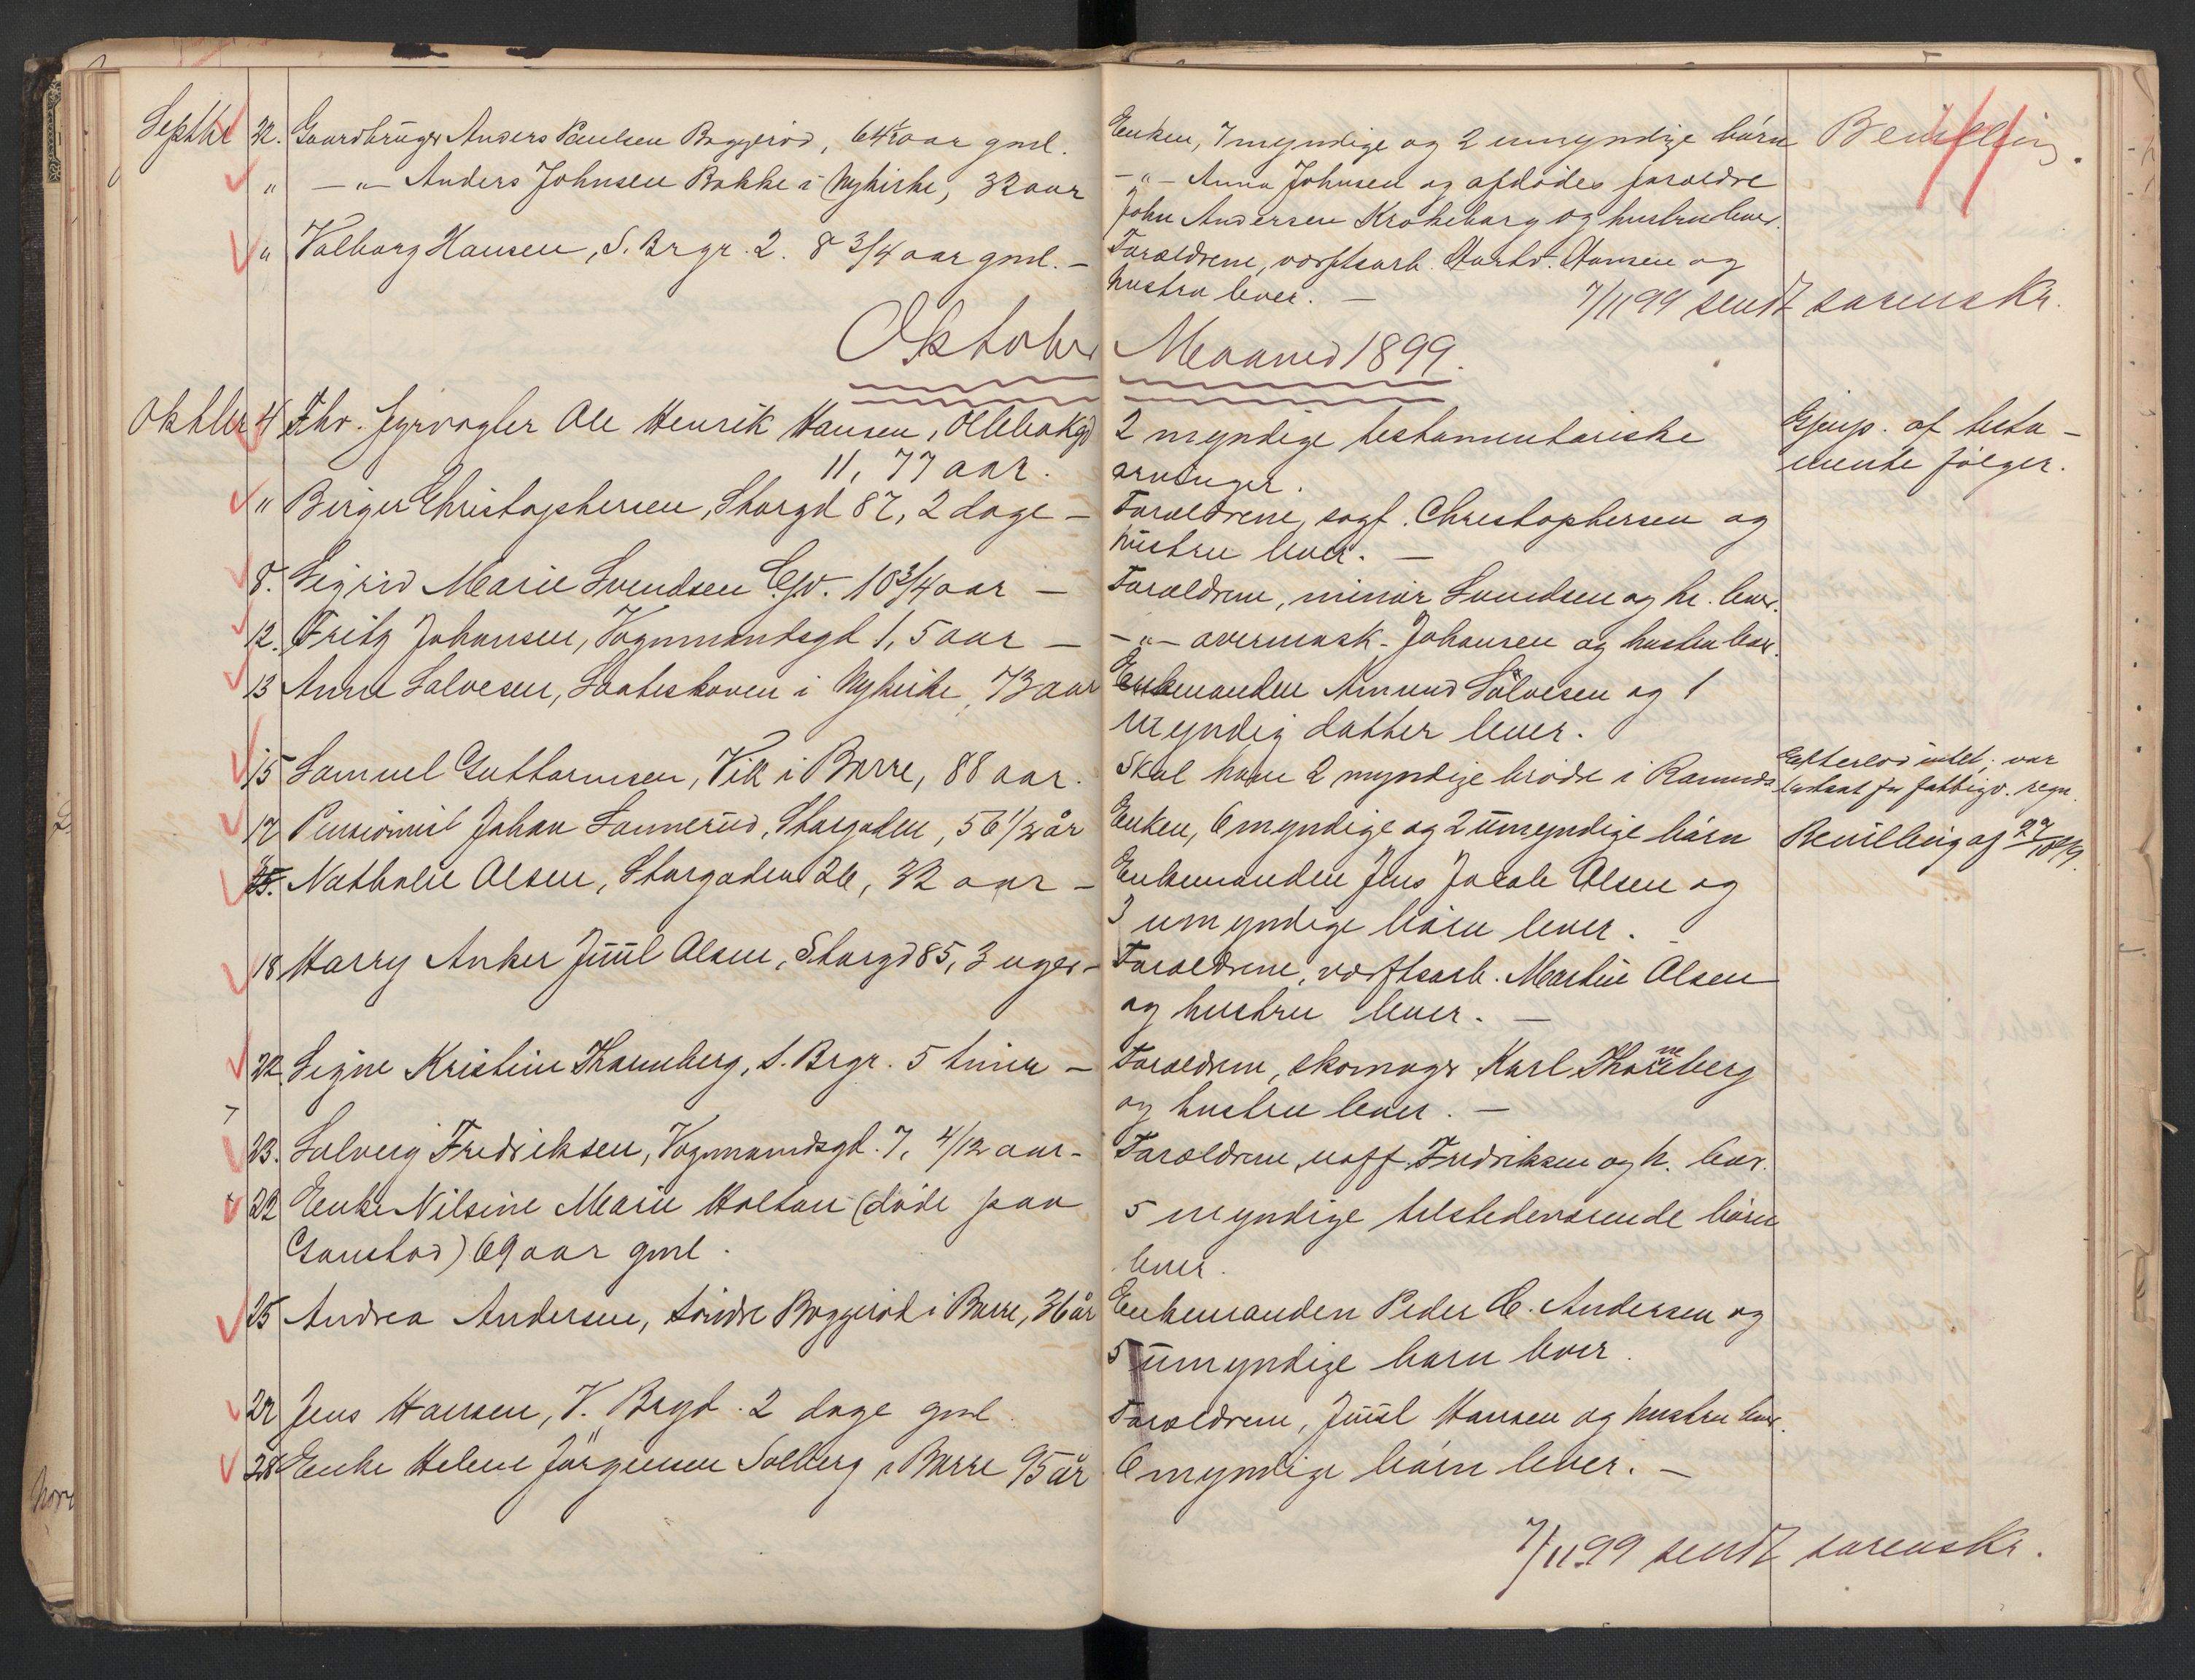 Septbr 22. Gaardbruger Anders Paulsen Baggerød, 64½ aar gml. Enken, 7 myndige og 2 umyndige børn Bevilling.
" -"- Anders Johnsen Bakke i Nykirke, 32 aar -"- Anna Johnsen og afdødes forældre
John Andersen Krokeborg og hustru lever.
" Valborg Hansen, S. Brgr. 2. 8 3/4 aar gml. - Forældrene, værftsarb. Hartv. Hansen og
hustru lever. -
7/11 99 sendt sorenskr.
Oktober Maaned 1899.
Oktbr 4 Fhv. fyrvogter Ole Henrik Hansen, Ollebakgd 2 myndige testamentariske Gjenp. af testa-
11, 77 aar. arvinger. mente følger.
" Birger Christophersen, Storgd 87, 2 dage - Forældrene, sagf. Christophersen og
hustru lever. -
8. Sigrid Marie Svendsen 10 3/4 aar - Forældrene, minør Svendsen og h. lever.
12. Fritz Johansen, Vognmandsgd 1, 5 aar - -"- overmask. Johansen og hustru lever.
13 Anne Salvesen, i Nykirke, 73 aar Enkemanden Amund Sølvesen og 1
myndig datter lever.
15 Samuel Guttormsen, Vik i Borre, 88 aar. Skal have 2 myndige brødre i Efterlod intet; var
for fattigv. regn.
17 Pensionist Johan Lannerud, Storgaden, 56 1/2 år Enken, 6 myndige og 2 umyndige børn Bevilling af 27/10 99.
Nathalie Olsen, Storgaden 26, 32 aar - Enkemanden Jens Jacob Olsen og
3 umyndige børn lever. -
18 Harry Anker Juul Olsen, Storgd 85, 3 uger - Forældrene, værftsarb. Martin Olsen
og hustru lever. -
22. Signe Kristine Thanberg, S. Brgr. 5 timer - Forældrene, skomager Karl Thoneberg
og hustru lever. -
23. Solveig Fredriksen, Vognmandsgd. 7, 4/12 aar - Forældrene, uoff. Fredriksen og h. lever.
22 Enke Nilsine Marie Holtan (døde paa 5 myndige tilstedeværende børn
Gaustad) 69 aar gml. lever.
25 Andrea Andersen, Søndre Baggerød i Borre, 36 år Enkemanden Peder C. Andersen og
5 umyndige børn lever.
27 Jens Hansen, V. Brgd. 2 dage gml. Forældrene, Juul Hansen og hustru lever.
28 Enke Helene Jørgensen Solberg i Borre 95 år 6 myndige børn lever. -
7/11 99 sendt sorenskr.